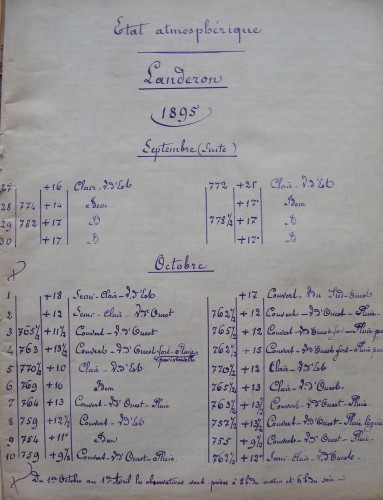 Etat atmosphérique
Landeron
1895
Septembre (Suite)
27 +16 Clair - V. d'Est 772 +21° Clair - V. d'Est
28 774 +14 Idem +17° Idem
29 782 +17 778½ +17
30 +17 +17
Octobre
1 +18 Semi-Clair - V. d'Est +17 Couvert - du Sud-Ouest
2 +12 Semi-Clair - V. d'Ouest 762½ +12 Couvert - V. d'Ouest - Pluie
3 765½ +11½ Couvert - V. d'Ouest 765½ +12 Couvert - V. d'Ouest fort - Pluie
4 763 +13½ Couvert - V. d'Ouest fort - Pluie 762½ +15 Couvert - V. d'Ouest fort - Pluie
5 770½ +10 Clair - V. d'Est 770½ +12 Clair - V. d'Est
6 769 +10 Idem 765½ +13 Clair - V. d'Ouest
7 764 +13 Couvert - V. d'Ouest - Pluie 763½ +13½ Couvert - V. d'Ouest - Pluie
8 759 +12½ Couvert - V. d'Est 757½ +13½ Couvert - V. d'Ouest - Pluie légère
9 754 +11° Idem 755 +9½ Couvert - V. d'Ouest - Pluie
10 759 +9½ Couvert - V. d'Ouest - Pluie 762½ +12° Semi-Clair - V. d'Ouest
Du 1er Octobre au 1er Avril les observations sont prises à 8h. du matin et 6h. du soir